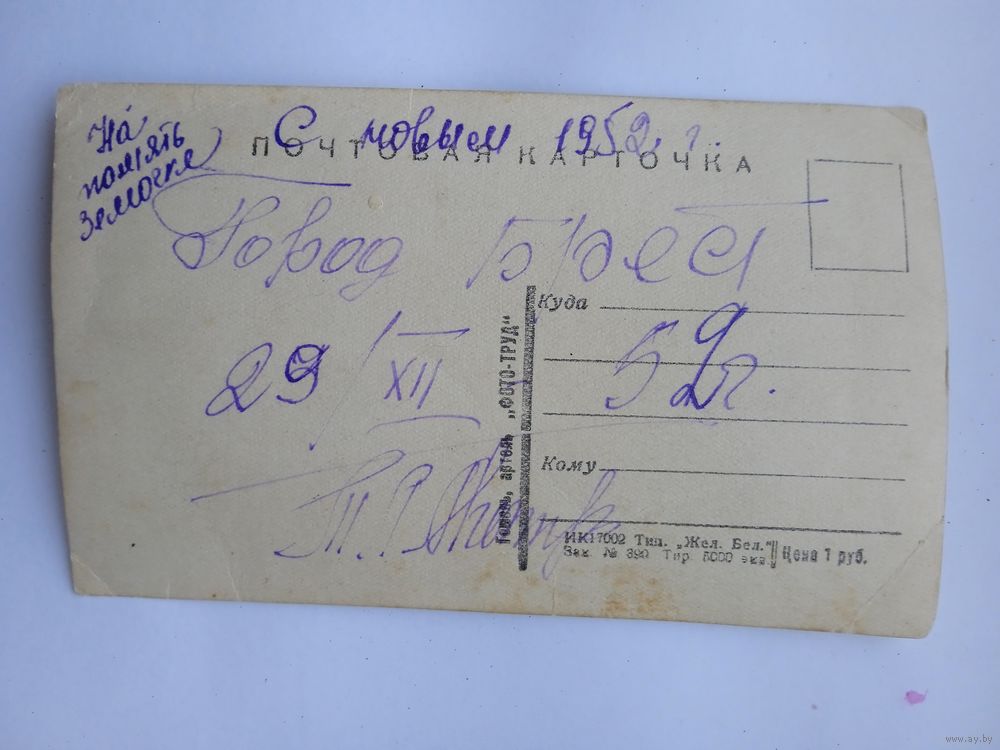 На
память
землячке
С новым 1952 г.
ПОЧТОВАЯ КАРТОЧКА
Город Брест
29 XII 52 г.
Куда
Кому
Гомель, артель „ФОТО-ТРУД“
ИК17002 Тип. „Жел. Бел.“
Зак. № 390 Тир. 5000 экз.
Цена 1 руб.
www.ay.by